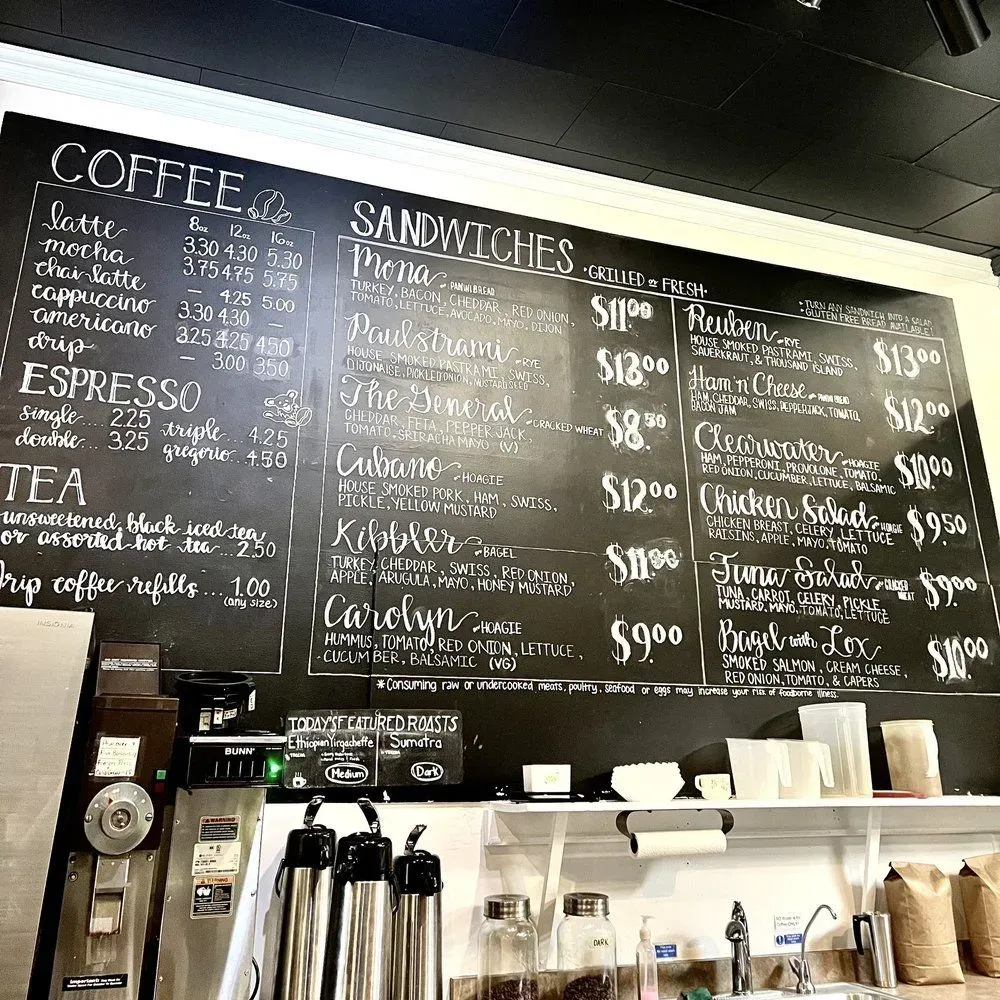 COFFEE
8oz 12oz 16oz
latte 3.30 4.30 5.30
mocha 3.75 4.75 5.75
chai latte — 4.25 5.00
cappuccino 3.30 4.30 —
americano 3.25 4.25 4.50
drip — 3.00 3.50
ESPRESSO
single... 2.25
double... 3.25
triple.... 4.25
gregorio... 4.50
TEA
unsweetened black iced tea
or assorted hot tea... 2.50
drip coffee refills ... 1.00
(any size)
SANDWICHES
• GRILLED or FRESH •
• TURN ANY SANDWICH INTO A SALAD
• GLUTEN FREE BREAD AVAILABLE!
Mona PANINI BREAD $11.00
TURKEY, BACON, CHEDDAR, RED ONION,
TOMATO, LETTUCE, AVOCADO, MAYO, DIJON
Paulstrami RYE $13.00
HOUSE SMOKED PASTRAMI, SWISS,
DIJONAISE, PICKLED ONION, MUSTARD SEED
The General CRACKED WHEAT $8.50
CHEDDAR, FETA, PEPPER JACK,
TOMATO, SRIRACHA MAYO (V)
Cubano HOAGIE $12.00
HOUSE SMOKED PORK, HAM, SWISS,
PICKLE, YELLOW MUSTARD
Kibbler BAGEL $11.00
TURKEY, CHEDDAR, SWISS, RED ONION,
APPLE, ARUGULA, MAYO, HONEY MUSTARD
Carolyn HOAGIE $9.00
HUMMUS, TOMATO, RED ONION, LETTUCE,
CUCUMBER, BALSAMIC (VG)
Reuben RYE $13.00
HOUSE SMOKED PASTRAMI, SWISS,
SAUERKRAUT, & THOUSAND ISLAND
Ham 'n' Cheese PANINI BREAD $12.00
HAM, CHEDDAR, SWISS, PEPPERJACK, TOMATO,
BACON JAM
Clearwater HOAGIE $10.00
HAM, PEPPERONI, PROVOLONE, TOMATO,
RED ONION, CUCUMBER, LETTUCE, BALSAMIC
Chicken Salad HOAGIE $9.50
CHICKEN BREAST, CELERY, LETTUCE
RAISINS, APPLE, MAYO, TOMATO
Tuna Salad CRACKED WHEAT $9.00
TUNA, CARROT, CELERY, PICKLE,
MUSTARD, MAYO, TOMATO, LETTUCE
Bagel with Lox $10.00
SMOKED SALMON, CREAM CHEESE,
RED ONION, TOMATO, & CAPERS
*Consuming raw or undercooked meats, poultry, seafood or eggs may increase your risk of foodborne illness.
INSIGNIA
BUNN
TODAY'S FEATURED ROASTS
Ethiopian Yirgacheffe
Medium
Sumatra
Dark
WARNING
WARNING
Important!
DARK